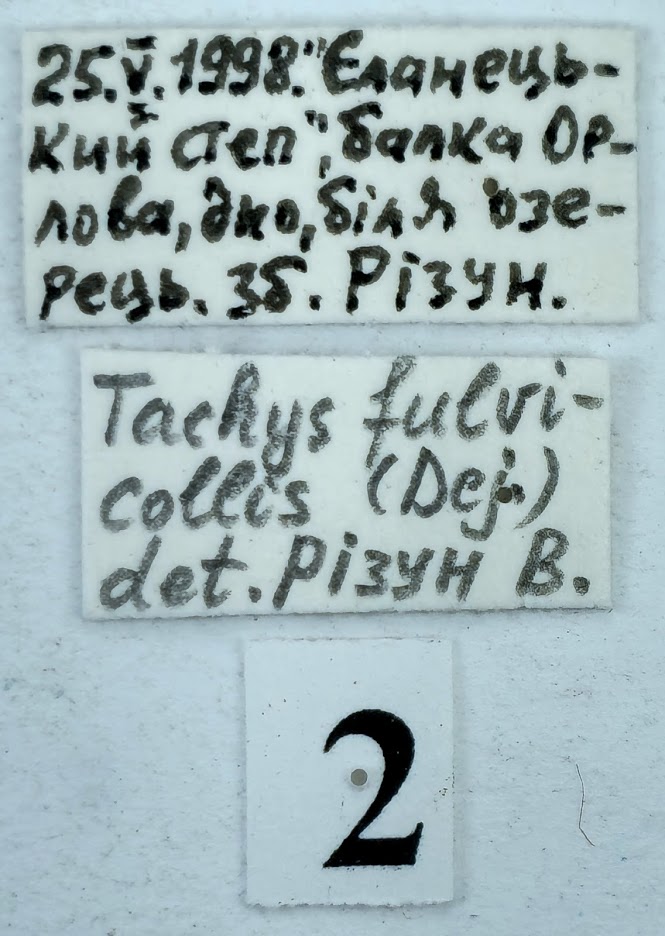 25.V.1998. "Єланець-
кий степ", балка Ор-
лова, дно, біля озе-
рець. зб. Різун.
Tachys fulvi-
collis (Dej.)
det. Різун В.
2